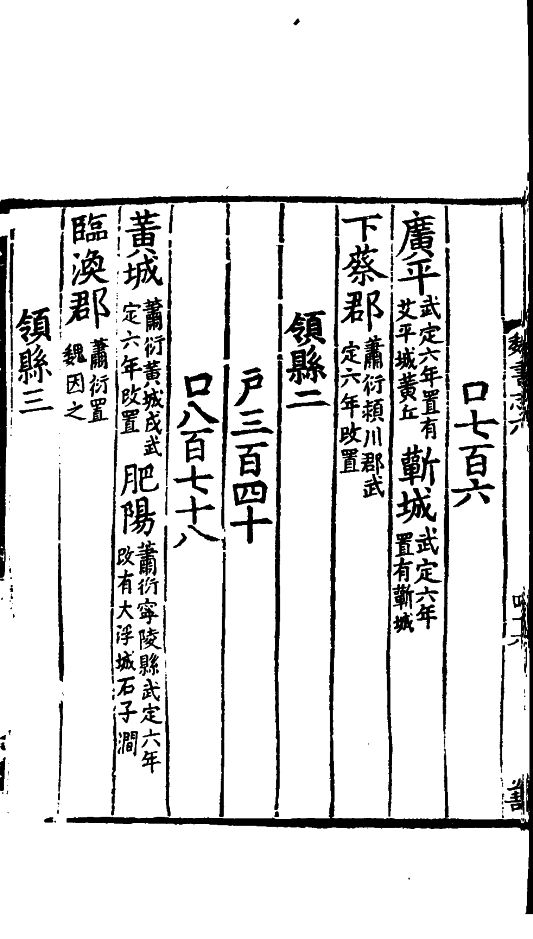 魏書志六
口七百六
廣平武定六年置有艾平城黃丘蘄城武定六年置有蘄城
下蔡郡蕭衍潁川郡武定六年改置
領縣二
戶三百四十
口八百七十八
黃城蕭衍黃城戍武定六年改置肥陽蕭衍寧陵縣武定六年改有大浮城石子澗
臨渙郡蕭衍置魏因之
領縣三